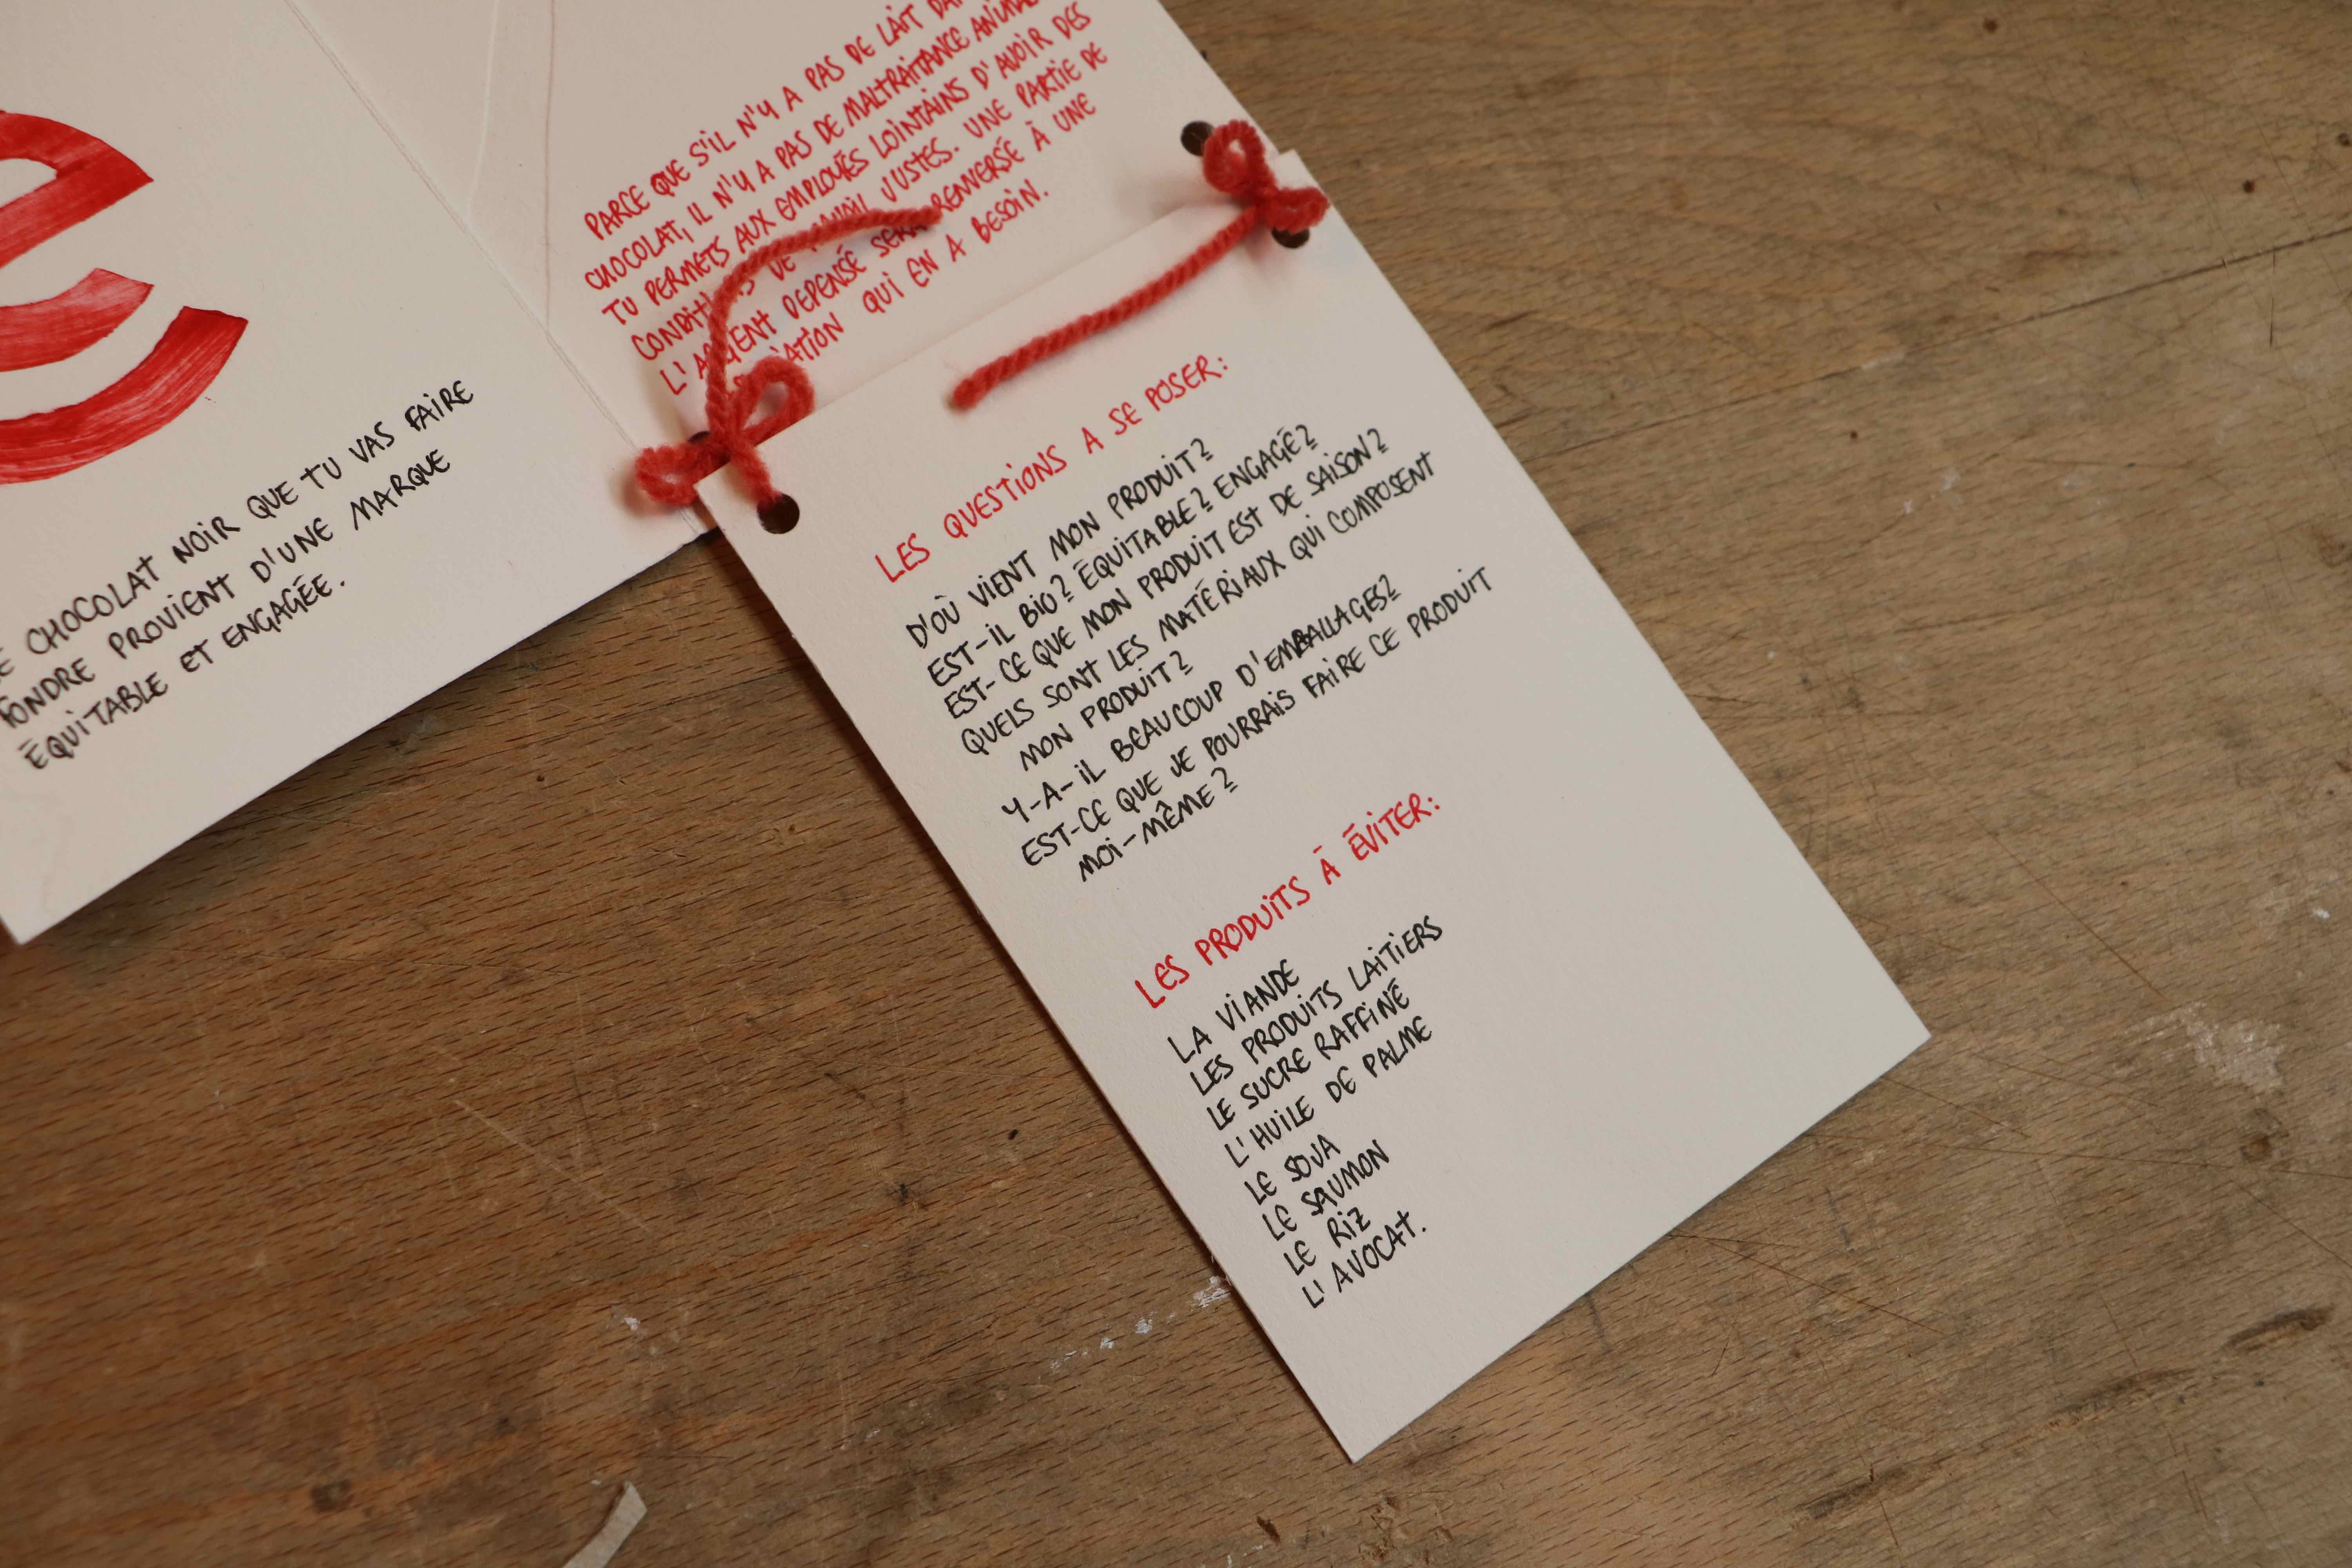 CHOCOLAT NOIR QUE TU VAS FAIRE
FONDRE PROVIENT D'UNE MARQUE
ÉQUITABLE ET ENGAGÉE.
PARCE QUE S'IL N'Y A PAS DE LAIT
CHOCOLAT, IL N'Y A PAS DE MALTRAITANCE
TU PERMETS AUX EMPLOYÉS LOINTAINS D'AVOIR DES
DE JUSTES. UNE PARTIE DE
DEPENSÉ SERA REVERSÉ À UNE
QUI EN A BESOIN.
LES QUESTIONS A SE POSER:
D'OÙ VIENT MON PRODUIT?
EST-IL BIO? ÉQUITABLE? ENGAGÉ?
EST-CE QUE MON PRODUIT EST DE SAISON?
QUELS SONT LES MATÉRIAUX QUI COMPOSENT
MON PRODUIT?
Y-A-IL BEAUCOUP D'EMBALLAGES?
EST-CE QUE JE POURRAIS FAIRE CE PRODUIT
MOI-MÊME?
LES PRODUITS À ÉVITER:
LA VIANDE
LES PRODUITS LAITIERS
LE SUCRE RAFFINÉ
L'HUILE DE PALME
LE SOJA
LE SAUMON
LE RIZ
L'AVOCAT.